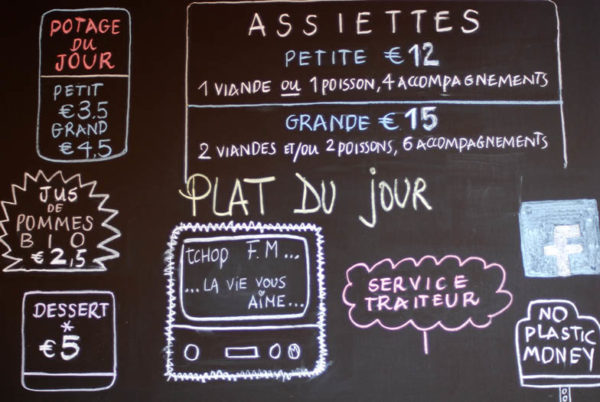 POTAGE
DU
JOUR
PETIT
€3.5
GRAND
€4,5
ASSIETTES
PETITE €12
1 VIANDE OU 1 POISSON, 4 ACCOMPAGNEMENTS
GRANDE €15
2 VIANDES ET/OU 2 POISSONS, 6 ACCOMPAGNEMENTS
JUS
DE
POMMES
BIO
€2,5
PLAT DU JOUR
tCHOP F.M...
...LA VIE VOUS
AIME...
SERVICE
TRAITEUR
f
DESSERT
*
€5
NO
PLASTIC
MONEY